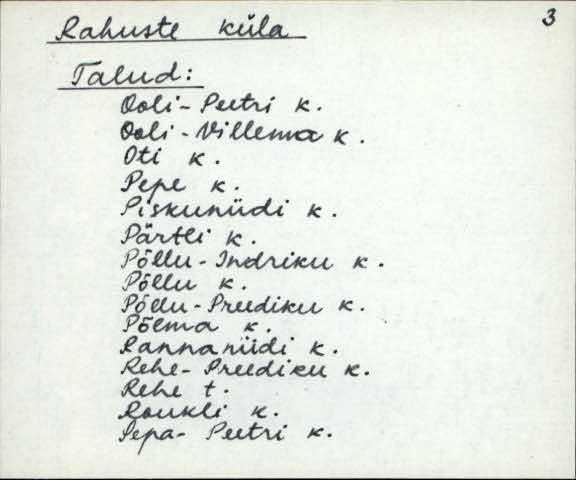 3
Rahuste küla
Talud:
Ooli-Peetri k.
Ooli-Villema k.
Oti k.
Pepe k.
Piskuniidi k.
Pärtli k.
Põllu-Indriku k.
Põllu k.
Põllu-Preediku k.
Põlma k.
Rannaniidi k.
Rehe-Preediku k.
Rehe t.
Roukli k.
Sepa-Peetri k.